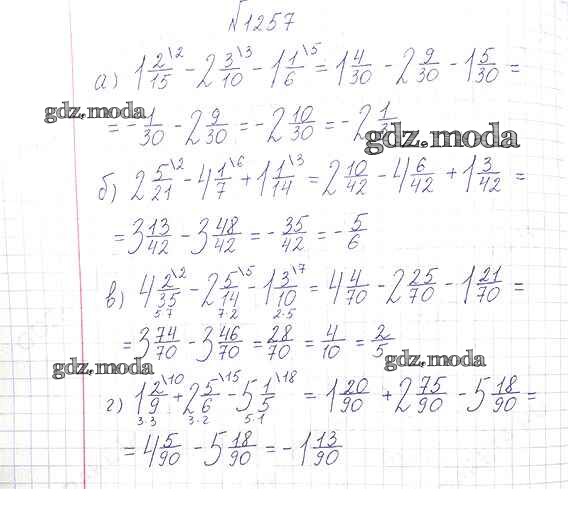 №1257
а) 1 2/15 \2 - 2 3/10 \3 - 1 1/6 \5 = 1 4/30 - 2 9/30 - 1 5/30 =
= - 1/30 - 2 9/30 = - 2 10/30 = - 2 1/3
gdz.moda
gdz.moda
б) 2 5/21 \2 - 4 1/7 \6 + 1 1/14 \3 = 2 10/42 - 4 6/42 + 1 3/42 =
= 3 13/42 - 3 48/42 = - 35/42 = - 5/6
в) 4 2/35 \2 - 2 5/14 \5 - 1 3/10 \7 = 4 4/70 - 2 25/70 - 1 21/70 =
5·7 7·2 2·5
= 3 74/70 - 3 46/70 = 28/70 = 4/10 = 2/5
gdz.moda
gdz.moda
г) 1 2/9 \10 + 2 5/6 \15 - 5 1/5 \18 = 1 20/90 + 2 75/90 - 5 18/90 =
3·3 3·2 5·1
= 4 5/90 - 5 18/90 = - 1 13/90